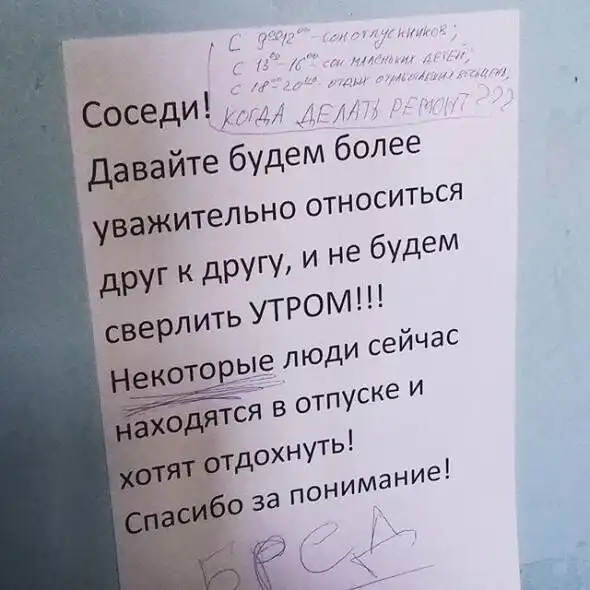 С 9⁰⁰ 12⁰⁰ - сон отпускников;
С 13⁰⁰ - 16⁰⁰ - сон маленьких детей;
С 18⁰⁰ - 20⁰⁰ - отдых
КОГДА ДЕЛАТЬ РЕМОНТ???
Соседи!
Давайте будем более
уважительно относиться
друг к другу, и не будем
сверлить УТРОМ!!!
Некоторые люди сейчас
находятся в отпуске и
хотят отдохнуть!
Спасибо за понимание!
БРЕД